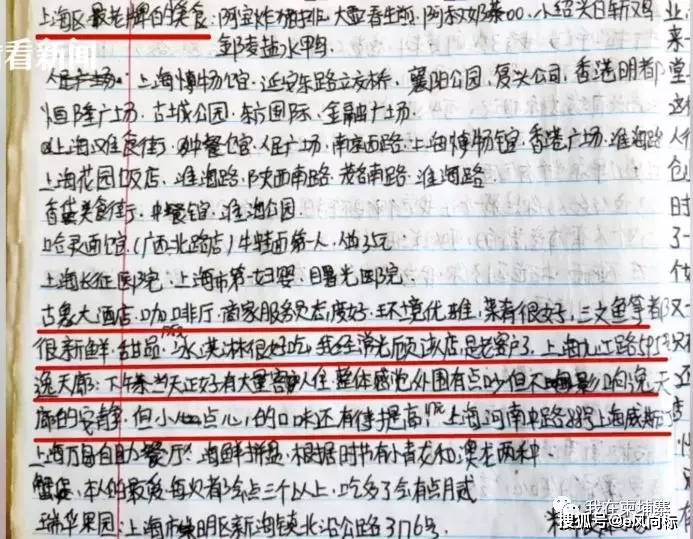 上海区最老牌的美食：阿宝炸猪排、大壶春生煎、阿叔奶茶00、小绍兴白斩鸡
看新闻
盐水鸭
人民广场、上海博物馆、延安东路立交桥、襄阳公园、复兴公司、香港明都
恒隆广场、古城公园、东方国际、金融广场
上海美食街、中餐馆、人民广场、南京西路、上海博物馆、香港广场、淮海路
上海花园饭店、淮海路、陕西南路、茂名南路、淮海路
美食街、中餐馆、淮海公园
哈灵面馆、(广西北路店)牛特面第一人、做25元
上海长征医院、上海市第一妇婴、曙光医院
古象大酒店、咖啡厅、商家服务员态度好、环境优雅、菜肴很好、三文鱼等都
很新鲜、甜品、冰淇淋很好吃、我经常光顾该店、是老客户了、上海九江路595
逸天廊：下午茶当天正好有大量客人住、整体感觉外围有点吵但不影响逸天
廊的安静、但小点心的口味还有待提高、上海河南中路 上海威斯
上海万豪自助餐厅：海鲜拼盘、根据时节有小青龙和澳龙两种
蟹煲、本人的最爱每次都会点三个以上、吃多了会有点月贰
瑞华果园：上海市崇明区新海镇北沿公路3176号
业
来
堂
人
仓
时
了
一
我在柬埔寨
搜狐号@风向标